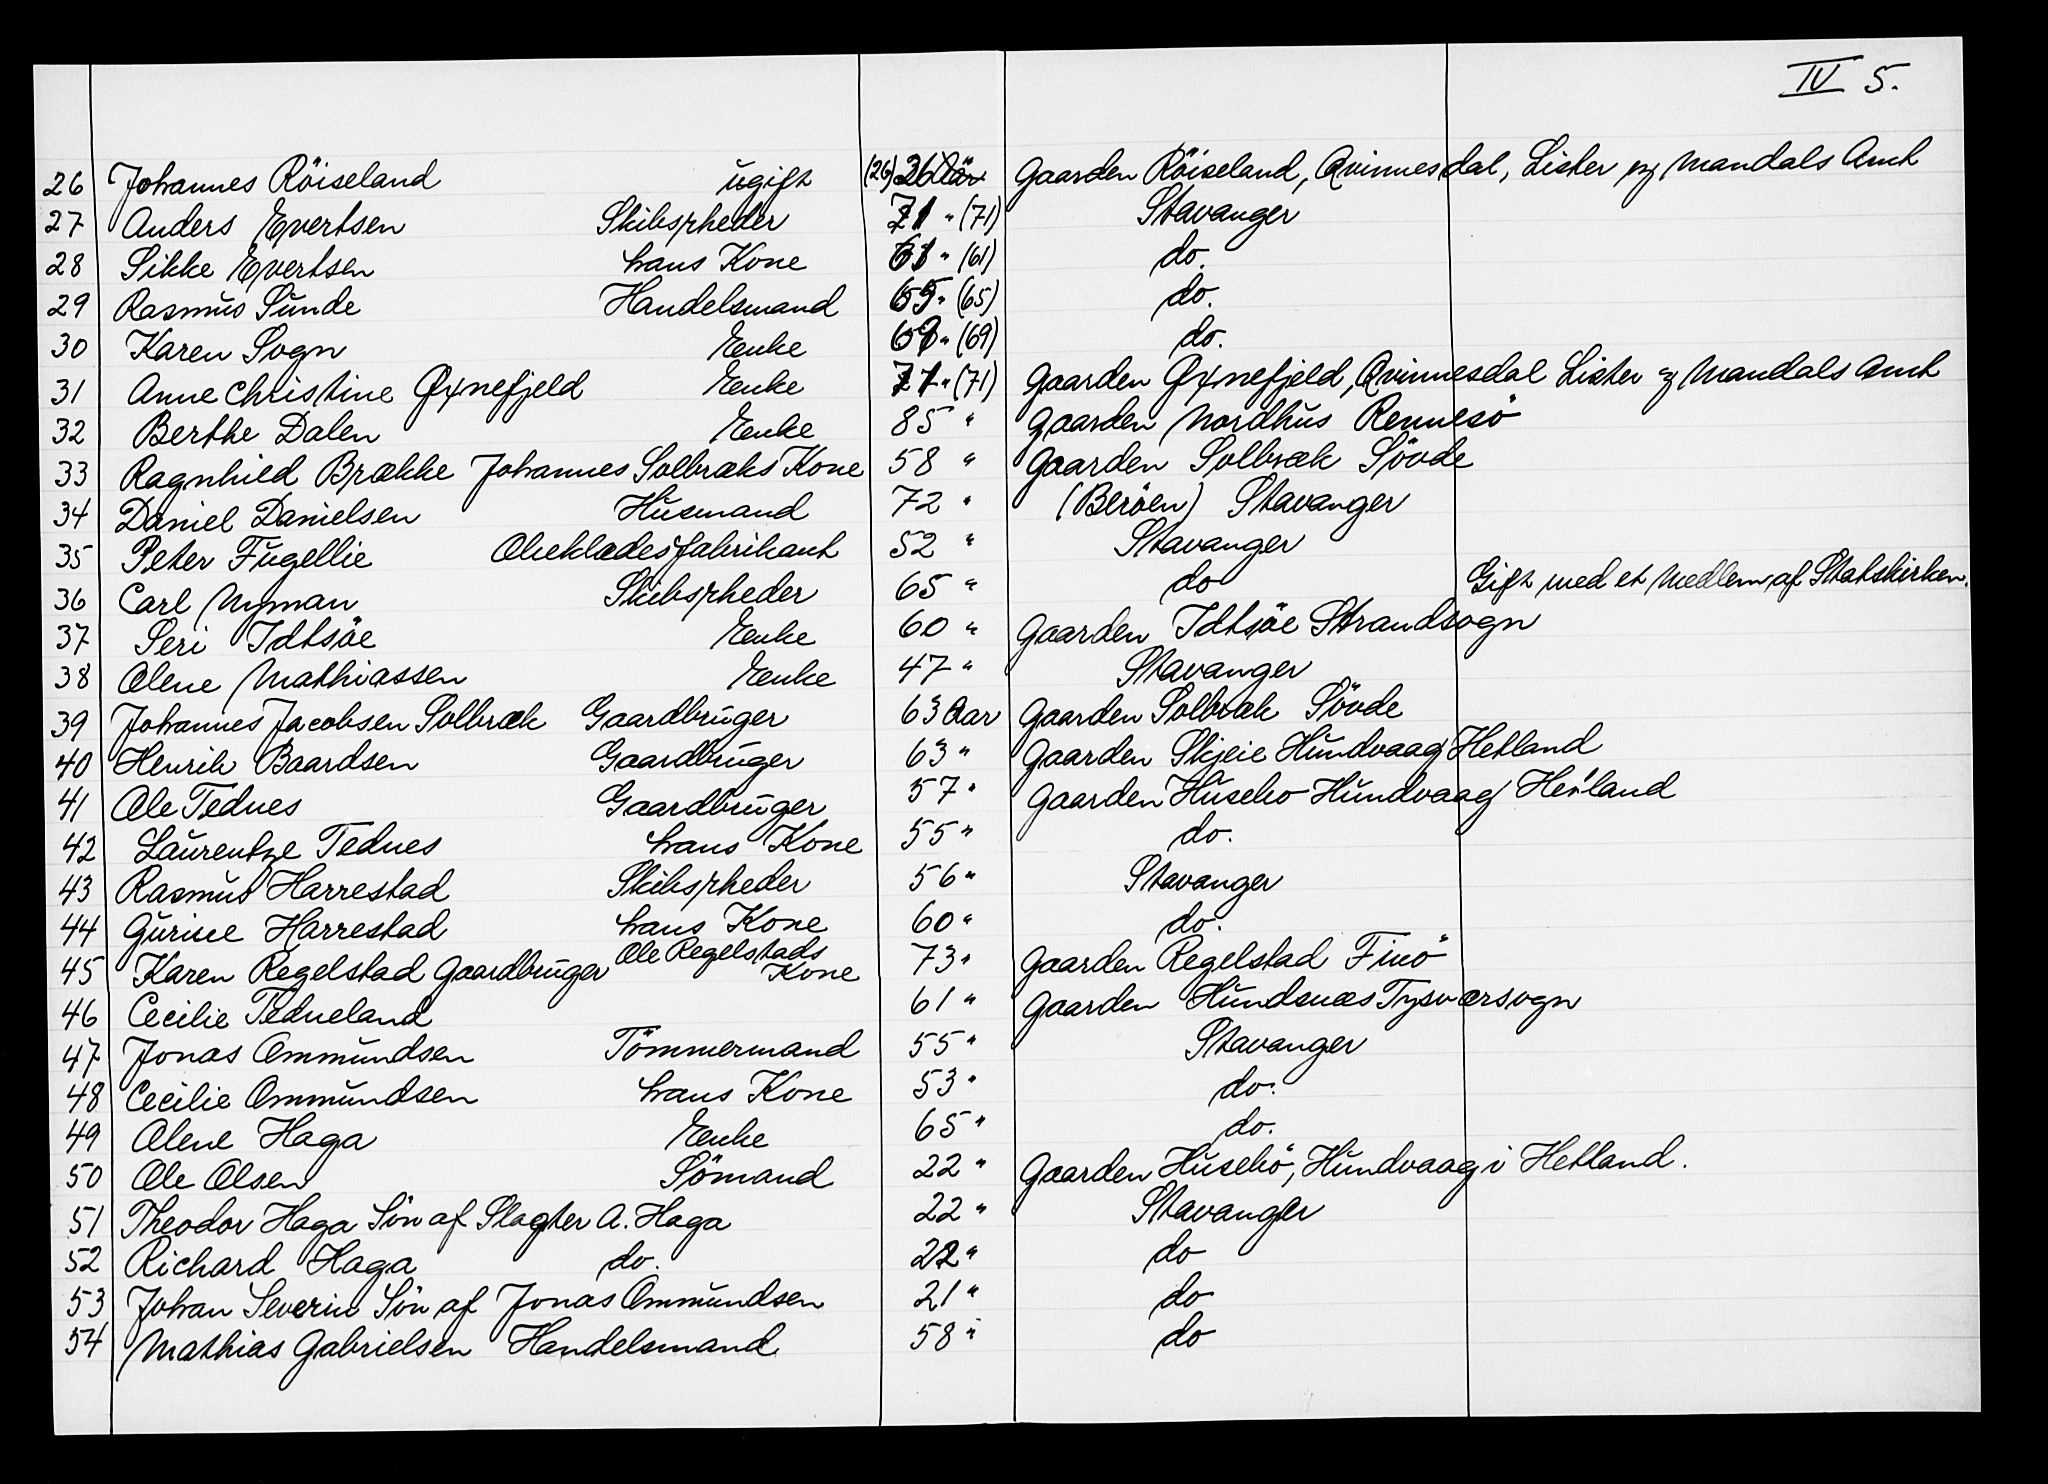 IV 5.
26 Johannes Röiseland ugift (26) 26 Aar Gaarden Röiseland, Qvinnesdal, Lister og Mandals Amt
27 Anders Evertsen Skibsrheder 71 " (71) Stavanger
28 Sikke Evertsen hans Kone 61 " (61) do.
29 Rasmus Sunde Handelsmand 65 " (65) do.
30 Karen Sogn Enke 69 " (69) do.
31 Anne Christine Øxnefjeld Enke 71 " (71) Gaarden Øxnefjeld, Qvinnesdal Lister og Mandals Amt
32 Berthe Dalen Enke 85 " Gaarden Nordhus Rennesö
33 Ragnhild Brække Johannes Solbræks Kone 58 " Gaarden Solbræk Sövde
34 Daniel Danielsen Husmand 72 " (Beröen) Stavanger
35 Peter Fugellie Oliekladesfabrikant 52 " Stavanger
36 Carl Nyman Skibsrheder 65 " do Gift med et Medlem af Statskirken.
37 Seri Idtsöe Enke 60 " Gaarden Idtsöe Strandsogn
38 Olene Mathiassen Enke 47 " Stavanger
39 Johannes Jacobsen Solbræk Gaardbruger 63 Aar Gaarden Solbræk Sövde
40 Henrik Baardsen Gaardbruger 63 " Gaarden Skjeie Hundvaag Hetland
41 Ole Tednes Gaardbruger 57 " Gaarden Husebo Hundvaag Hetland
42 Laurentze Tednes hans Kone 55 " do.
43 Rasmus Harrestad Skibsrheder 56 " Stavanger
44 Gurine Harrestad hans Kone 60 " do.
45 Karen Regelstad Gaardbruger Ole Regelstads Kone 73 " Gaarden Regelstad Finö
46 Cecilie Tedneland 61 " Gaarden Hundsnæs Tysværsogn
47 Jonas Ommundsen Tömmermand 55 " Stavanger
48 Cecilie Ommundsen hans Kone 53 " do.
49 Olene Haga Enke 65 " do.
50 Ole Olsen Sömand 22 " Gaarden Husebö, Hundvaag i Hetland.
51 Theodor Haga Sön af Slagter A. Haga 22 " Stavanger
52 Richard Haga do. 22 " do
53 Johan Severin Sön af Jonas Ommundsen 21 " do
54 Mathias Gabrielsen Handelsmand 58 " do